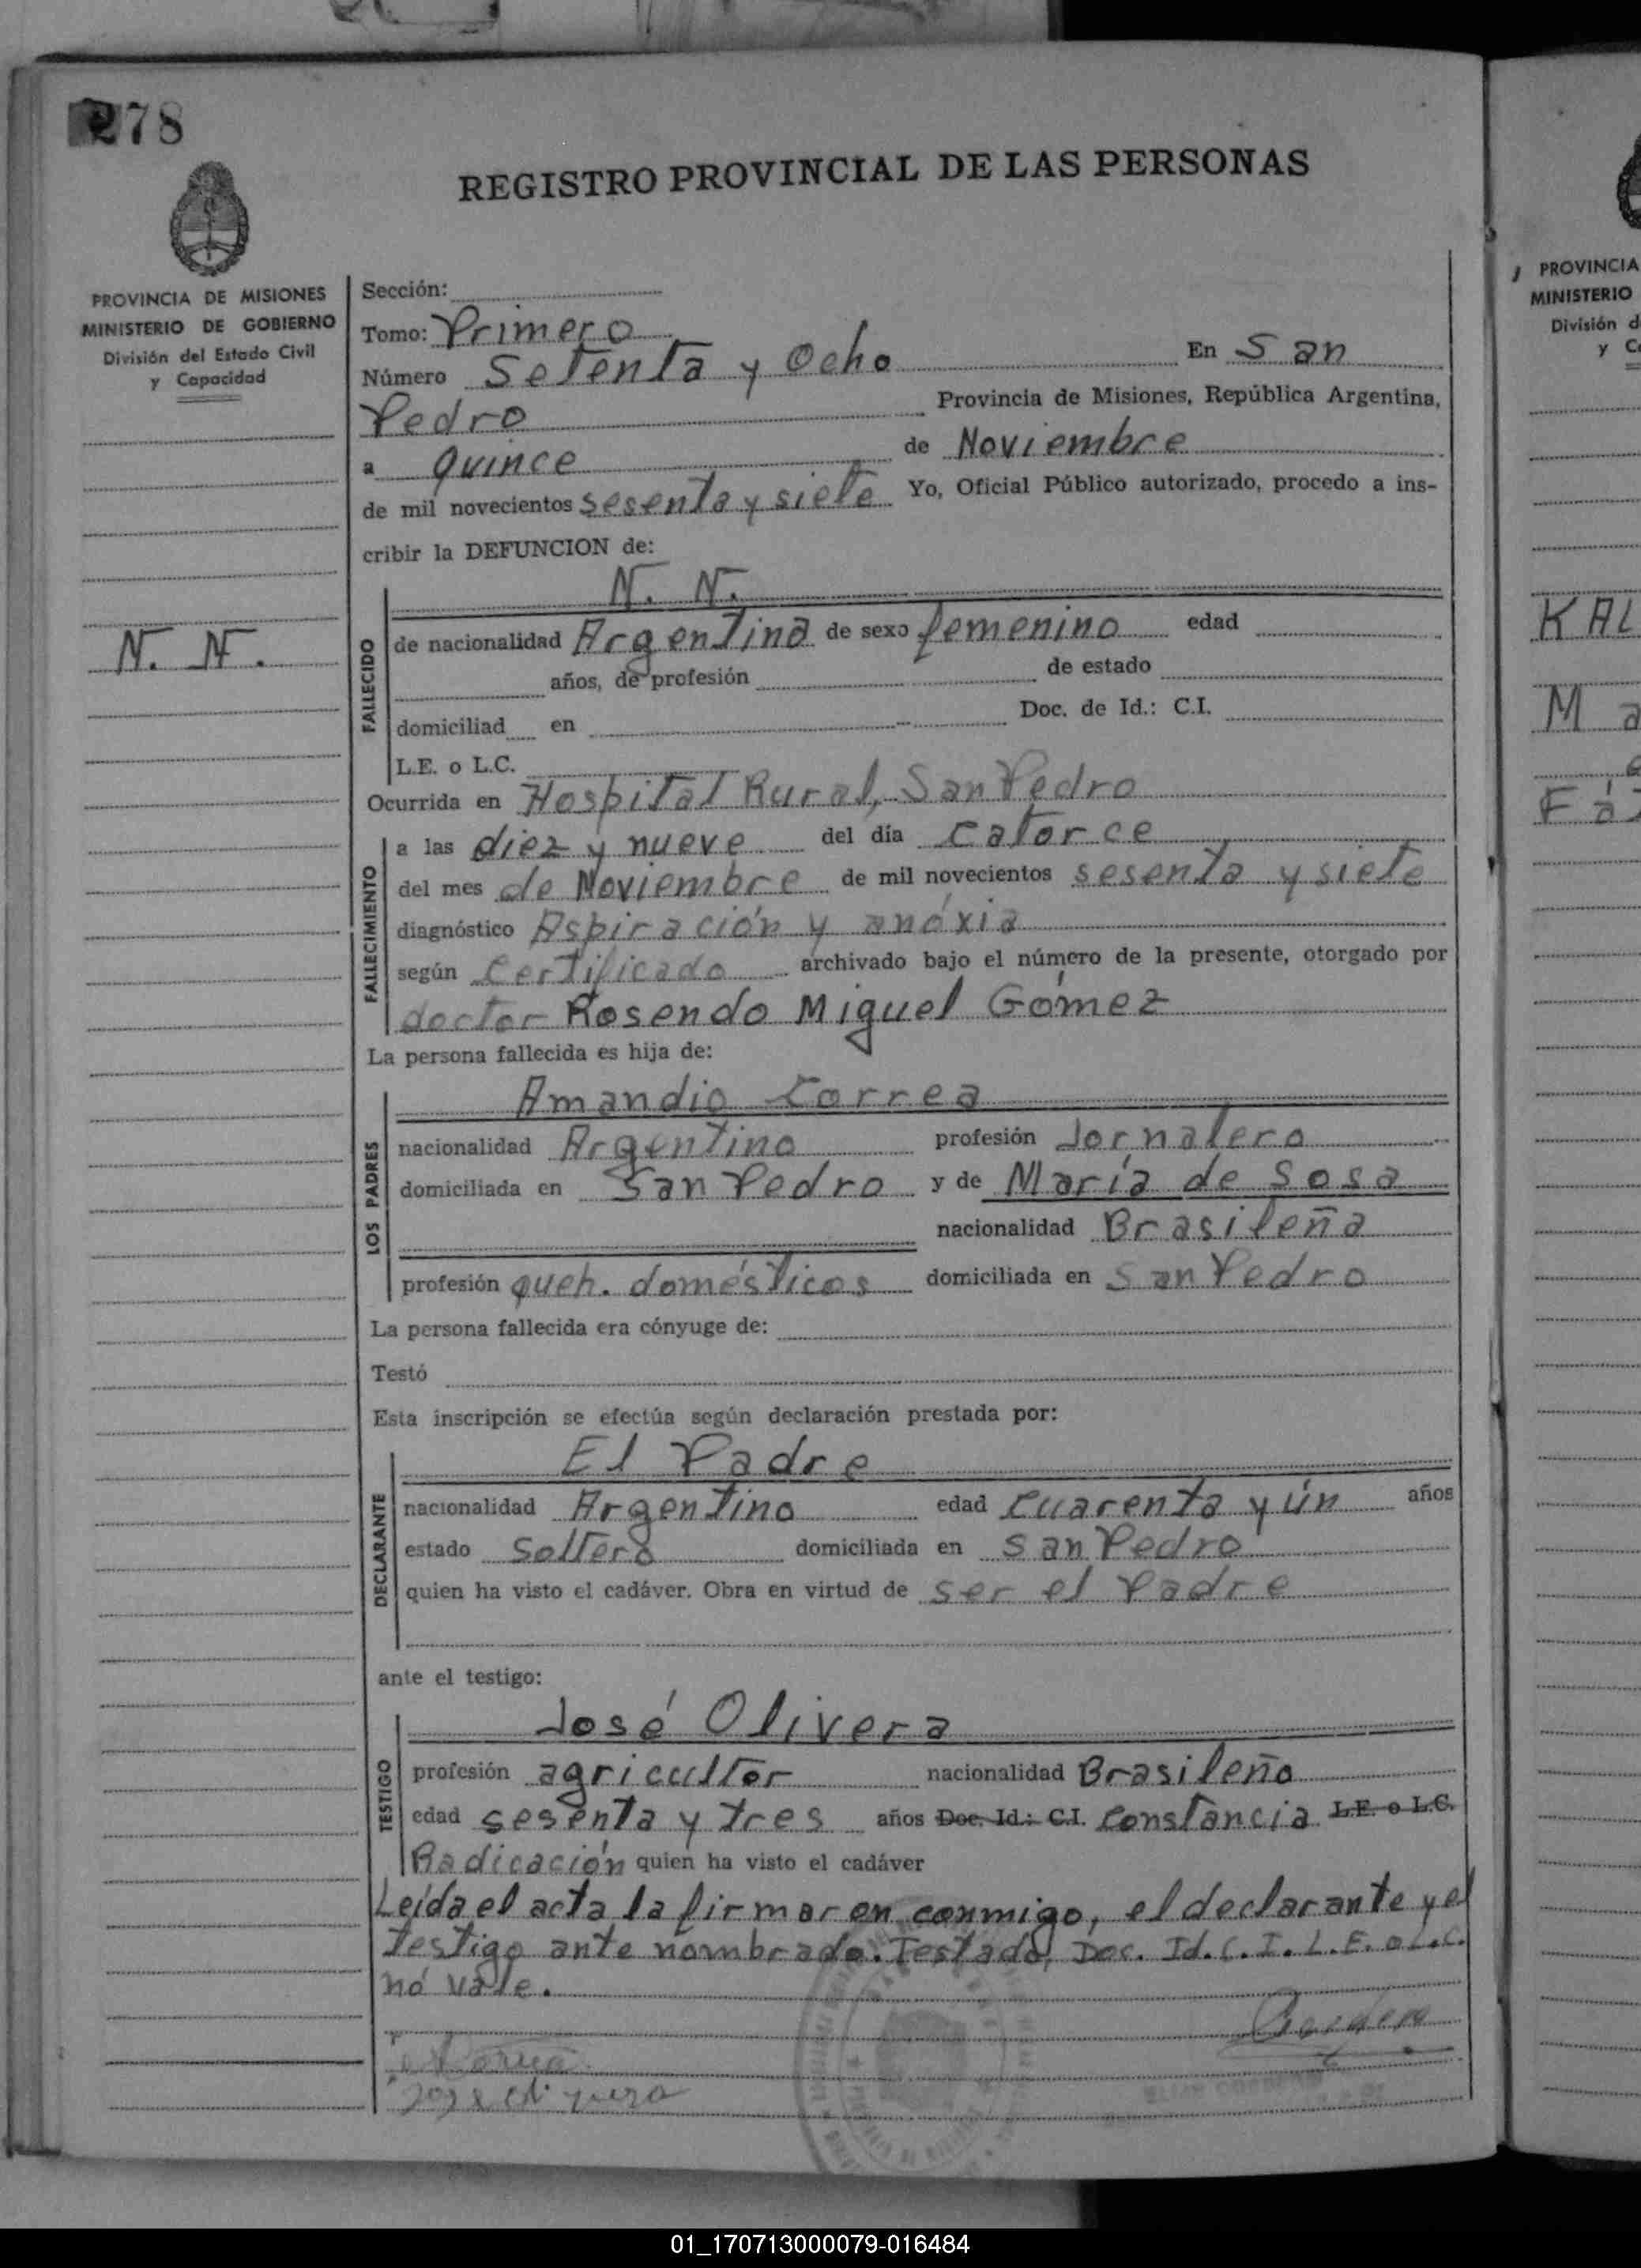 278
REGISTRO PROVINCIAL DE LAS PERSONAS
PROVINCIA DE MISIONES
MINISTERIO DE GOBIERNO
División del Estado Civil
y Capacidad
N. N.
Sección:
Tomo: Primero
Número Setenta y Ocho En San
Pedro Provincia de Misiones, República Argentina,
a quince de Noviembre
de mil novecientos sesenta y siete Yo, Oficial Público autorizado, procedo a ins-
cribir la DEFUNCION de:
N. N.
FALLECIDO
de nacionalidad Argentina de sexo femenino edad
años, de profesión de estado
domiciliad en Doc. de Id.: C.I.
L.E. o L.C.
Ocurrida en Hospital Rural, San Pedro
FALLECIMIENTO
a las diez y nueve del día catorce
del mes de Noviembre de mil novecientos sesenta y siete
diagnóstico Aspiración y anóxia
según Certificado archivado bajo el número de la presente, otorgado por
doctor Rosendo Miguel Gómez
La persona fallecida es hija de:
LOS PADRES
Amandio Correa
nacionalidad Argentino profesión Jornalero
domiciliada en San Pedro y de María de Sosa
nacionalidad Brasileña
profesión queh. domésticos domiciliada en San Pedro
La persona fallecida era cónyuge de:
Testó
Esta inscripción se efectúa según declaración prestada por:
DECLARANTE
El Padre
nacionalidad Argentino edad cuarenta y ún años
estado Soltero domiciliada en San Pedro
quien ha visto el cadáver. Obra en virtud de ser el Padre
ante el testigo:
TESTIGO
José Olivera
profesión agricultor nacionalidad Brasileño
edad sesenta y tres años Doc. Id.: C.I. Constancia L.E. o L.C.
Radicación quien ha visto el cadáver
Leída el acta la firmaron conmigo, el declarante y el
testigo ante nombrado. Testado, Doc. Id. C. I. L. E. o L. C.
nó vale.
PROVINCIA
MINISTERIO
División d
y C
KAL
M a
F á
01_170713000079-016484